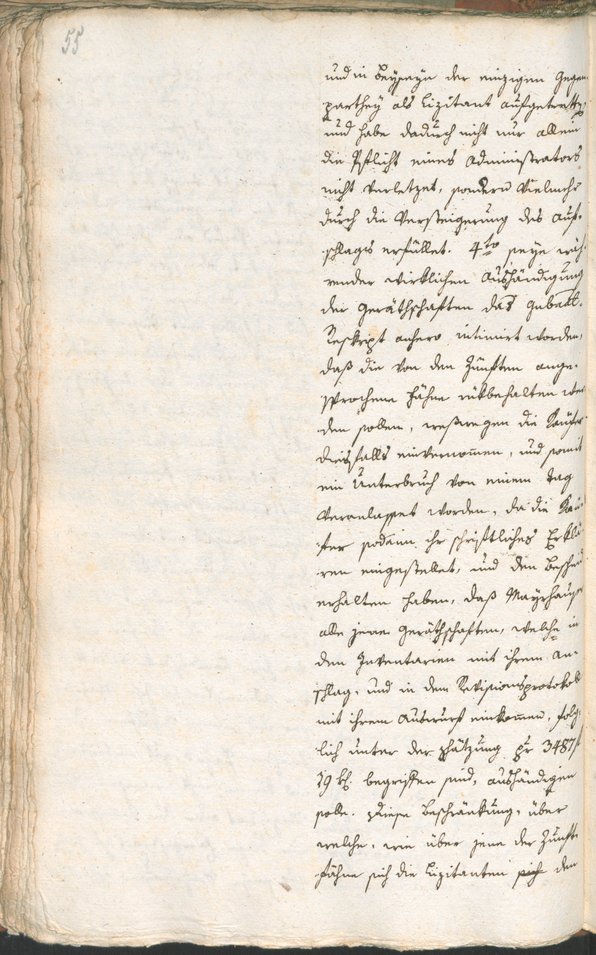 55
und in Beyseyn der einzigen Gegen-
parthey als Lizitant aufgetretten,
und habe dadurch nicht nur allein
die Pflicht eines Administrators
nicht verletzet, sondern vielmehr
durch die Versteigerung des Auf-
schlages erfüllet. 4to seye wäh-
render wirklichen Aushändigung
der Geräthschaften das Gubeal.
Reskript anhero intimiret worden,
daß die von den Zünften ange-
sprochene Fähne rükbehalten wer
den sollen, weßwegen die Käufer
diesfalls einvernommen, und somit
ein Unterbruch von einem Tag
veranlasset worden, da die Käu-
fer sodann ihr schriftliches Erklä-
ren eingestellet, und den Bescheid
erhalten haben, daß Mayrhauser
alle jene Geräthschaften, welche in
den Inventarien mit ihrem An-
schlag, und in dem Revisionsprotokoll
mit ihrem Auswurf einkommen, folg-
lich unter der Schätzung pr 3487 f
29 kr. begriffen sind, aushändigen
solle. Diese Beschränkung, über
welche, wie über jene der Zunft-
fähne sich die Lizitanten den